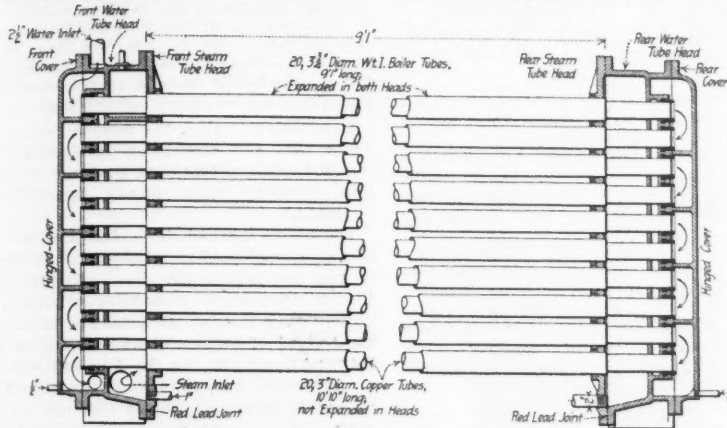 Front Water
Tube Head
2½" Water Inlet
Front
Cover
Front Steam
Tube Head
9'1"
20, 3¾" Diam. W't. I. Boiler Tubes,
9'1" long,
Expanded in both Heads
Rear Steam
Tube Head
Rear Water
Tube Head
Rear
Cover
Hinged-Cover
Hinged Cover
½"
Steam Inlet
1"
Red Lead Joint
20, 3" Diam. Copper Tubes,
10'10" long,
not Expanded in Heads
Red Lead Joint